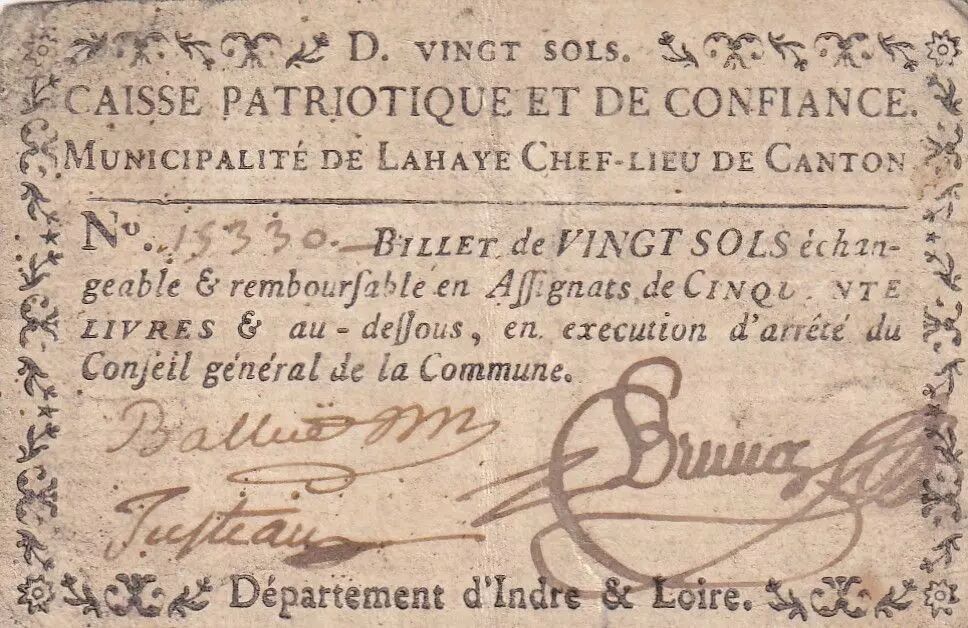 D. VINGT SOLS.
CAISSE PATRIOTIQUE ET DE CONFIANCE.
MUNICIPALITÉ DE LAHAYE CHEF-LIEU DE CANTON
No. 15330. BILLET de VINGT SOLS échan-
geable & rembourſable en Aſſignats de CINQU NTE
LIVRES & au-deſſous, en execution d'arrêté du
Conſeil général de la Commune.
Juſteau
Département d'Indre & Loire.